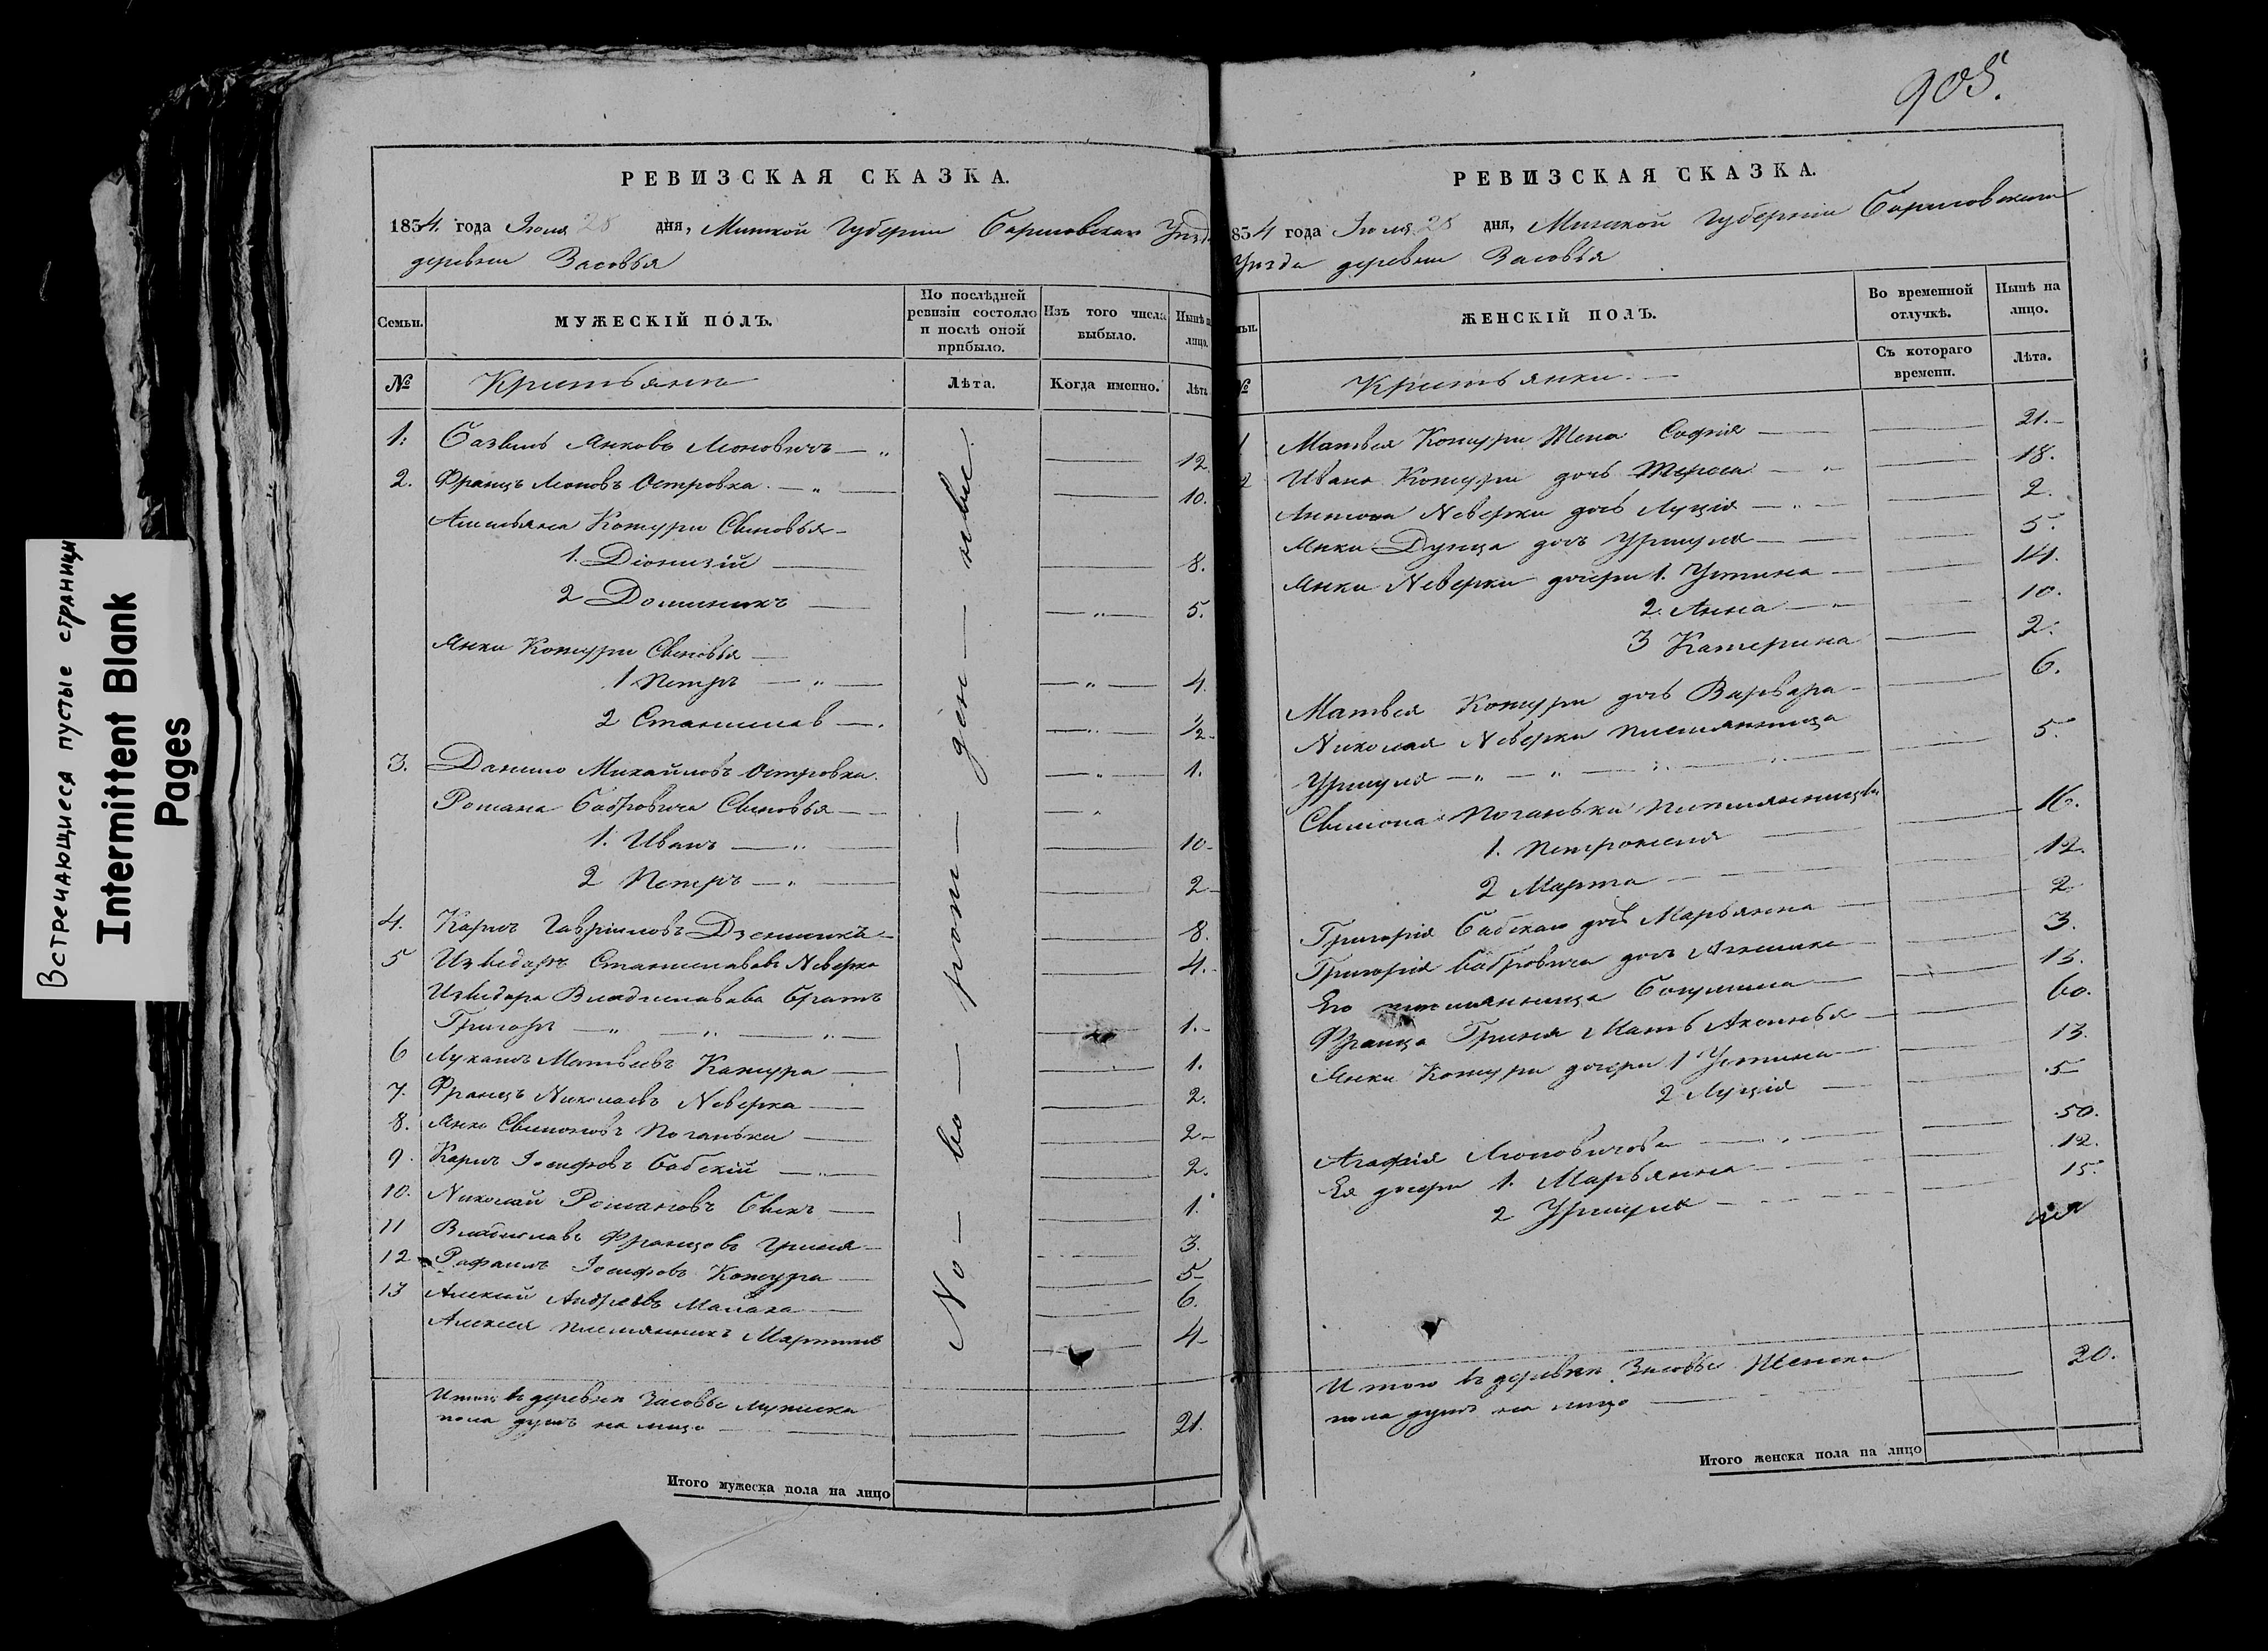 Встречающиеся пустые страницы
Intermittent Blank
Pages
905.
РЕВИЗСКАЯ СКАЗКА.
1854. года Іюля 28 дня, Минской Губерніи Борисовскаго Уѣзда
деревни Засовья
Семьи.
МУЖЕСКІЙ ПОЛЪ.
По послѣдней ревизіи состояло и послѣ оной прибыло.
Изъ того числа выбыло.
Нынѣ на лицо.
№ Крестьяне Лѣта. Когда именно. Лѣта
Но — во — рож — ден — ные.
1. Янковъ Леоновичъ — 12.
2. Францъ Леоновъ Островка — 10.
Кожури Сыновья —
1. Діонизій — 8.
2 Доминикъ — 5.
Янки Кожури Сыновья —
1 Петръ — 4.
2 Станиславъ — 1/2
3. Данило Михайловъ Островка. — 1.
Романа Бобровича Сыновья —
1. Иванъ — 10
2 Петръ — 2
4. Карлъ Гавріиловъ — 8.
5 Изыдоръ Станиславовъ Неверко 4.
Изыдора Владиславова братъ
Григоръ — 1.
6 Лукашъ Матвѣевъ Кожура — 1.
7. Францъ Николаевъ Неверка — 2.
8. Янко Сымоновъ Поганька — 2
9. Карлъ Іосифовъ Бабскій — 2.
10. Николай Романовъ — 1.
11 Владиславъ Францовъ Гриня — 3.
12 Рафаилъ Іосифовъ Кожура — 5
13 Алексѣй Андреевъ — 6.
Алексѣя племянникъ Мартинъ 4
Итого въ деревнѣ Засовье мужеска
пола душъ на лицо — 21.
Итого мужеска пола на лицо
РЕВИЗСКАЯ СКАЗКА.
854 года Іюля 28 дня, Минской Губерніи Борисовскаго
Уѣзда деревни Засовья
ЖЕНСКІЙ ПОЛЪ.
Во временной отлучкѣ.
Нынѣ на лицо.
№ Крестьянки — Съ котораго времени. Лѣта.
1 Матвея Кожури Жена Софія — 21.
2 Ивана Кожури дочь Тереса — 18.
Антона Неверки дочь Луція — 2.
Янки Дунца дочь Уршуля — 5.
Янки Неверки дочери 1. Устина — 14.
2. Анна — 10.
3 Катерина — 2.
Матвея Кожури дочь Варвара — 6.
Николая Неверки племянница
Уршуля — 5.
Сымона Поганьки племянницы
1. Петронеля — 16.
2 Марта — 12.
Григорія Бабскаго дочь Марьянна — 2
Григорія Бобровича дочь — 3.
Его племянница — 13.
Франца Гриня Мать — 60.
Янки Кожури дочери 1 Устина — 13.
2 Луція — 5
Агафія Леоновичова — 50.
Ея дочери 1. Марьянна — 12.
2 Уршуля — 15.
Итого въ деревнѣ Засовье Женска
пола душъ на лицо — 20.
Итого женска пола на лицо